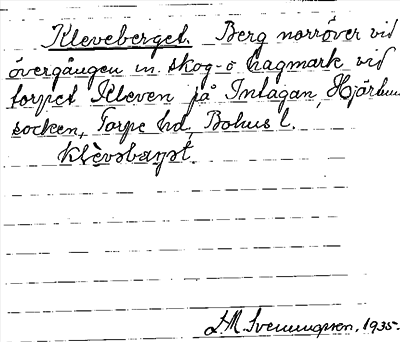 Kleveberget. Berg norröver vid
övergången m. skog- o hagmark vid
torpet Kleven på Inlagan, Hjärtum
socken, Torpe hd, Bohus l.
klèvəbærjət.
S.M. Svenungsson. 1935.